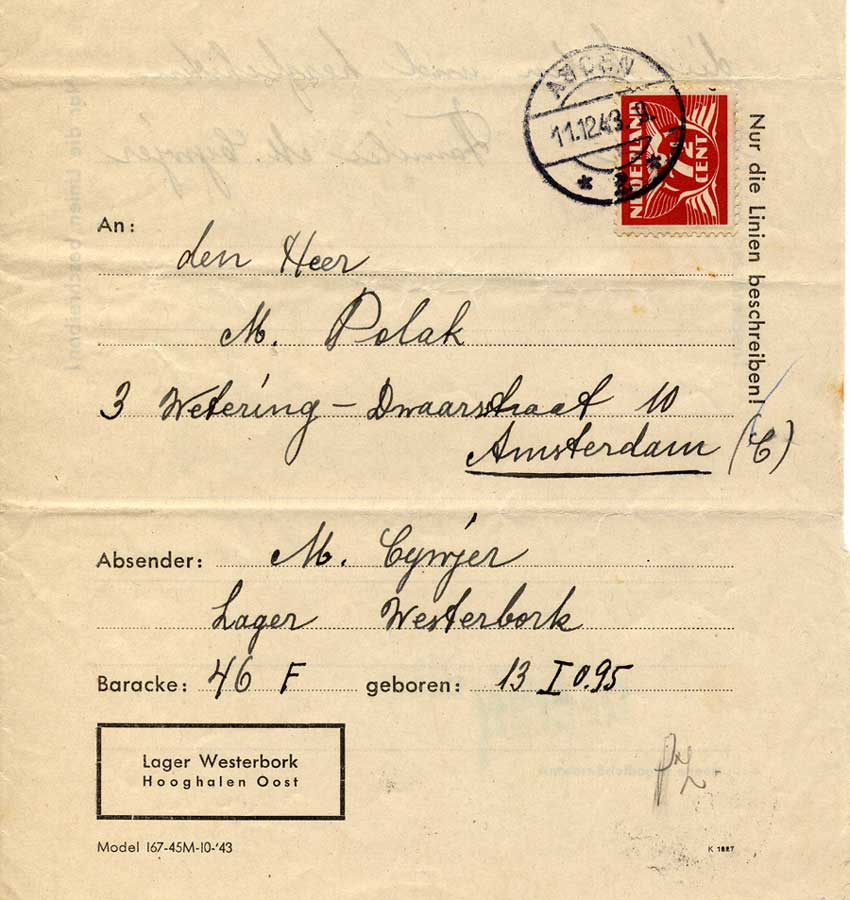 ASSEN
11.12.43. 9.
*2*
NEDERLAND
7½
CENT
Nur die Linien beschreiben!
An:
den Heer
M. Polak
3 Wetering – Dwaarstraat 10
Amsterdam (C)
Absender: M. Cywjer
Lager Westerbork
Baracke: 46 F geboren: 13 I 0.95
Lager Westerbork
Hooghalen Oost
Model 167-45M-10-'43
K 1887